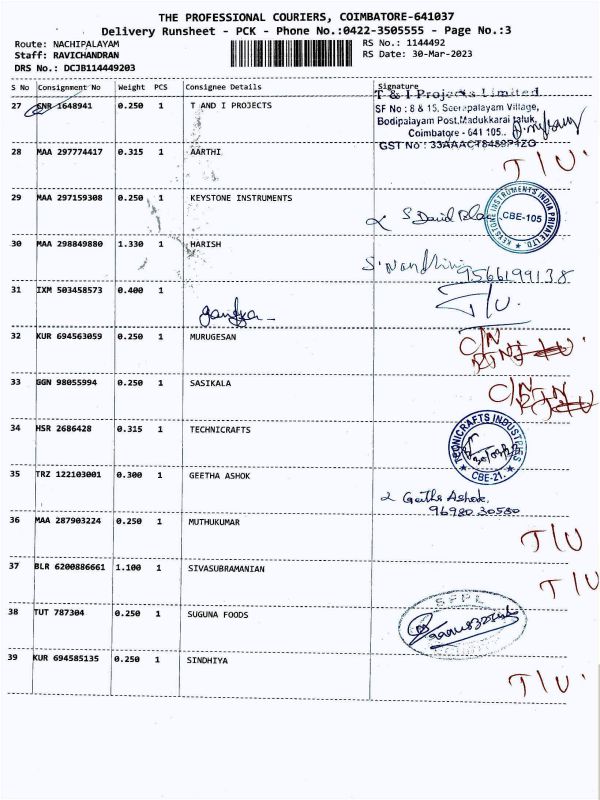 THE PROFESSIONAL COURIERS, COIMBATORE-641037
Delivery Runsheet - PCK - Phone No.:0422-3505555 - Page No.:3
Route: NACHIPALAYAM RS No.: 1144492
Staff: RAVICHANDRAN RS Date: 30-Mar-2023
DRS No.: DCJB114449203
S No Consignment No Weight PCS Consignee Details Signature
T & I Projects Limited
27 GNR 1648941 0.250 1 T AND I PROJECTS
SF No : 8 & 15, Seerapalayam Village,
Bodipalayam Post, Madukkarai Taluk,
Coimbatore - 641 105.
GST No : 33AAACT8459P1ZO
28 MAA 297774417 0.315 1 AARTHI T/U
29 MAA 297159308 0.250 1 KEYSTONE INSTRUMENTS
KEYSTONE INSTRUMENTS INDIA PRIVATE LTD.
CBE-105
S David
30 MAA 298849880 1.330 1 HARISH
S. Nandhini
9566199138
31 IXM 503458573 0.400 1 T/U.
32 KUR 694563059 0.250 1 MURUGESAN C/N
33 GGN 98055994 0.250 1 SASIKALA C/N
34 HSR 2686428 0.315 1 TECHNICRAFTS
TECHNICRAFTS INDUSTRIES
CBE-21.
35 TRZ 122103001 0.300 1 GEETHA ASHOK
Geetha Ashok.
96980 30580
36 MAA 287903224 0.250 1 MUTHUKUMAR T/U
37 BLR 6200886661 1.100 1 SIVASUBRAMANIAN T/U
38 TUT 787304 0.250 1 SUGUNA FOODS
SFPL
39 KUR 694585135 0.250 1 SINDHIYA T/U